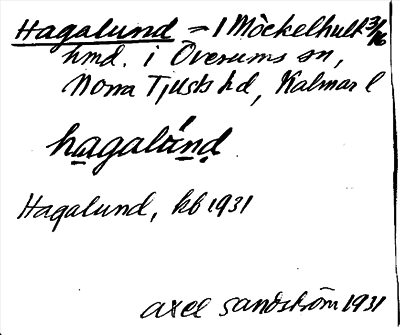 Hagalund = 1 Möckelhult 3/16
hmd. i Överums sn,
Norra Tjusts hd, Kalmar l
hagalúnd
Hagalund, kb 1931
Axel Sandström 1931